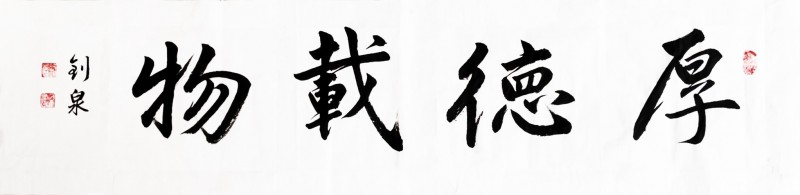 厚德載物
釗泉